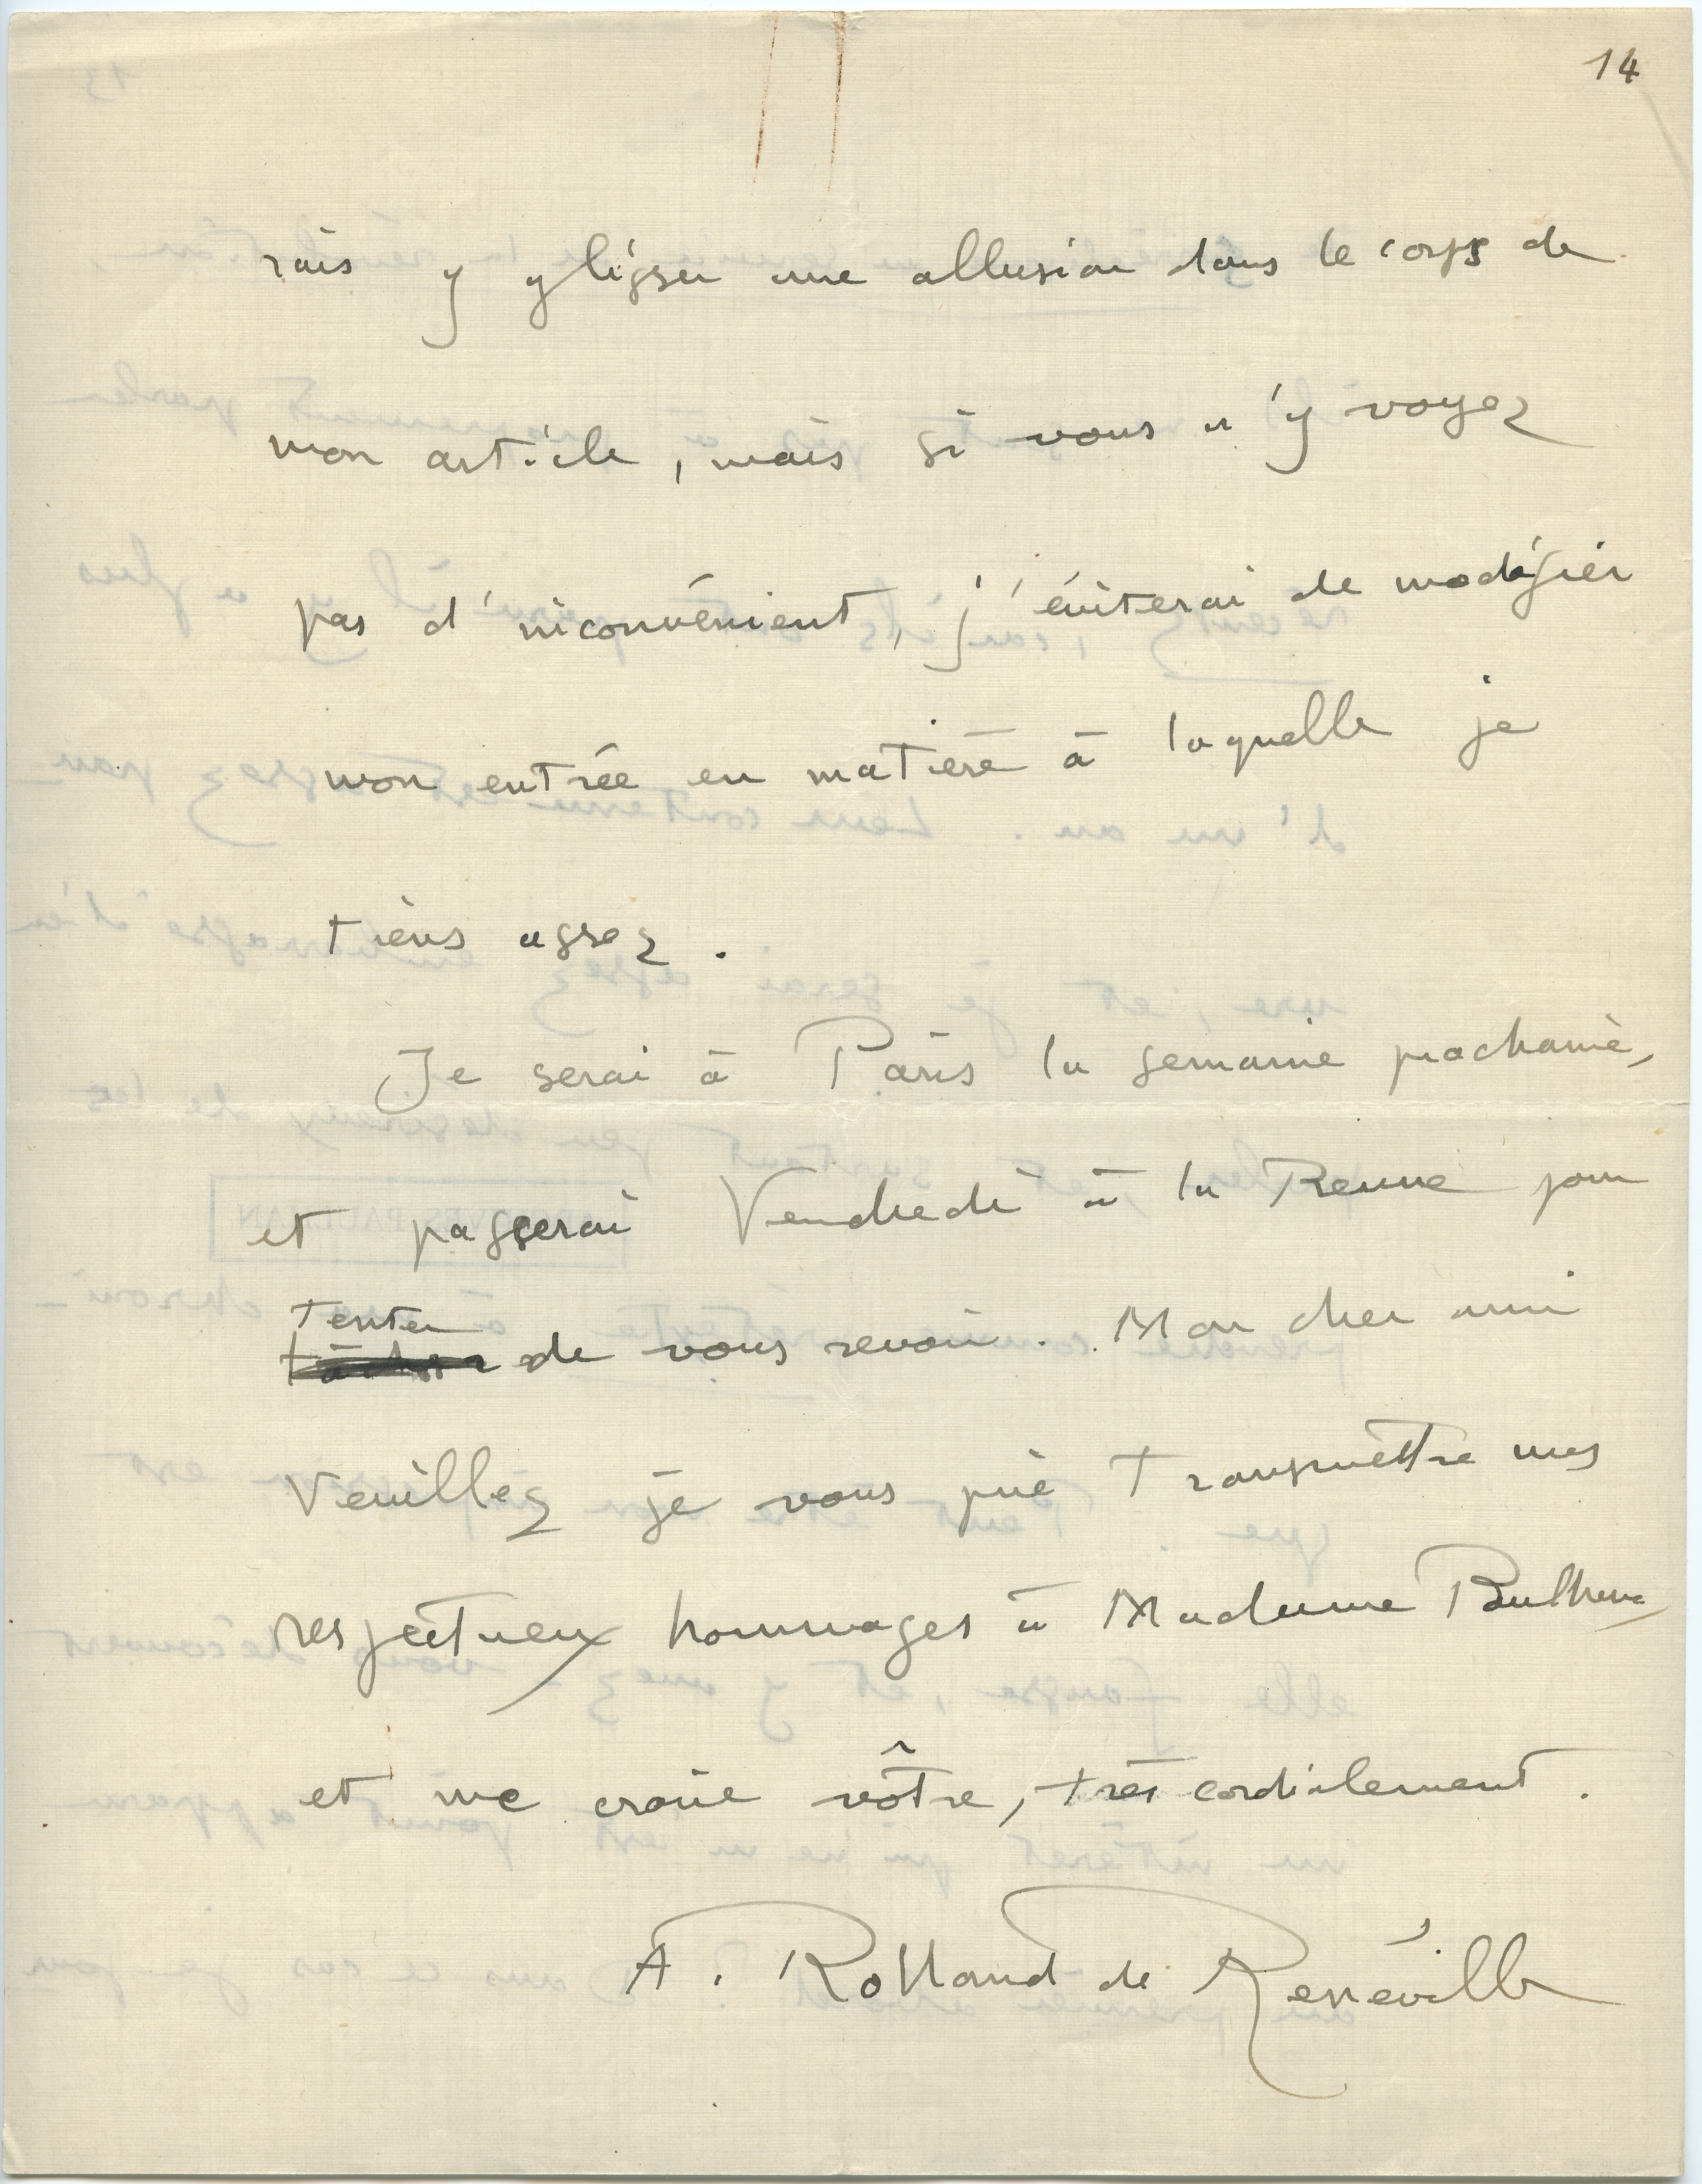 14
rais y glisser une allusion dans le corps de
mon article, mais si vous n'y voyez
pas d'inconvénient, j'éviterai de modifier
mon entrée en matière à laquelle je
tiens assez.
Je serai à Paris la semaine prochaine,
et passerai Vendredi à la Revue pour
tenter
tâcher de vous revoir. Mon cher ami
Veuillez je vous prie transmettre mes
respectueux hommages à Madame Paulhan
et me croire vôtre, très cordialement.
A. Rolland de Renéville